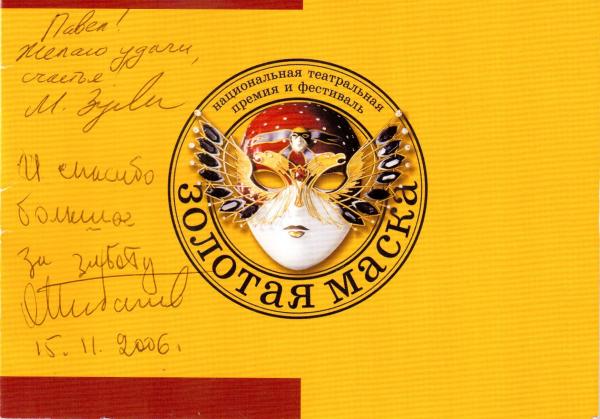 Павел!
Желаю удачи,
счастья
М.
И спасибо
большое
за заботу
15.11.2006.
национальная театральная
премия и фестиваль
ЗОЛОТАЯ МАСКА